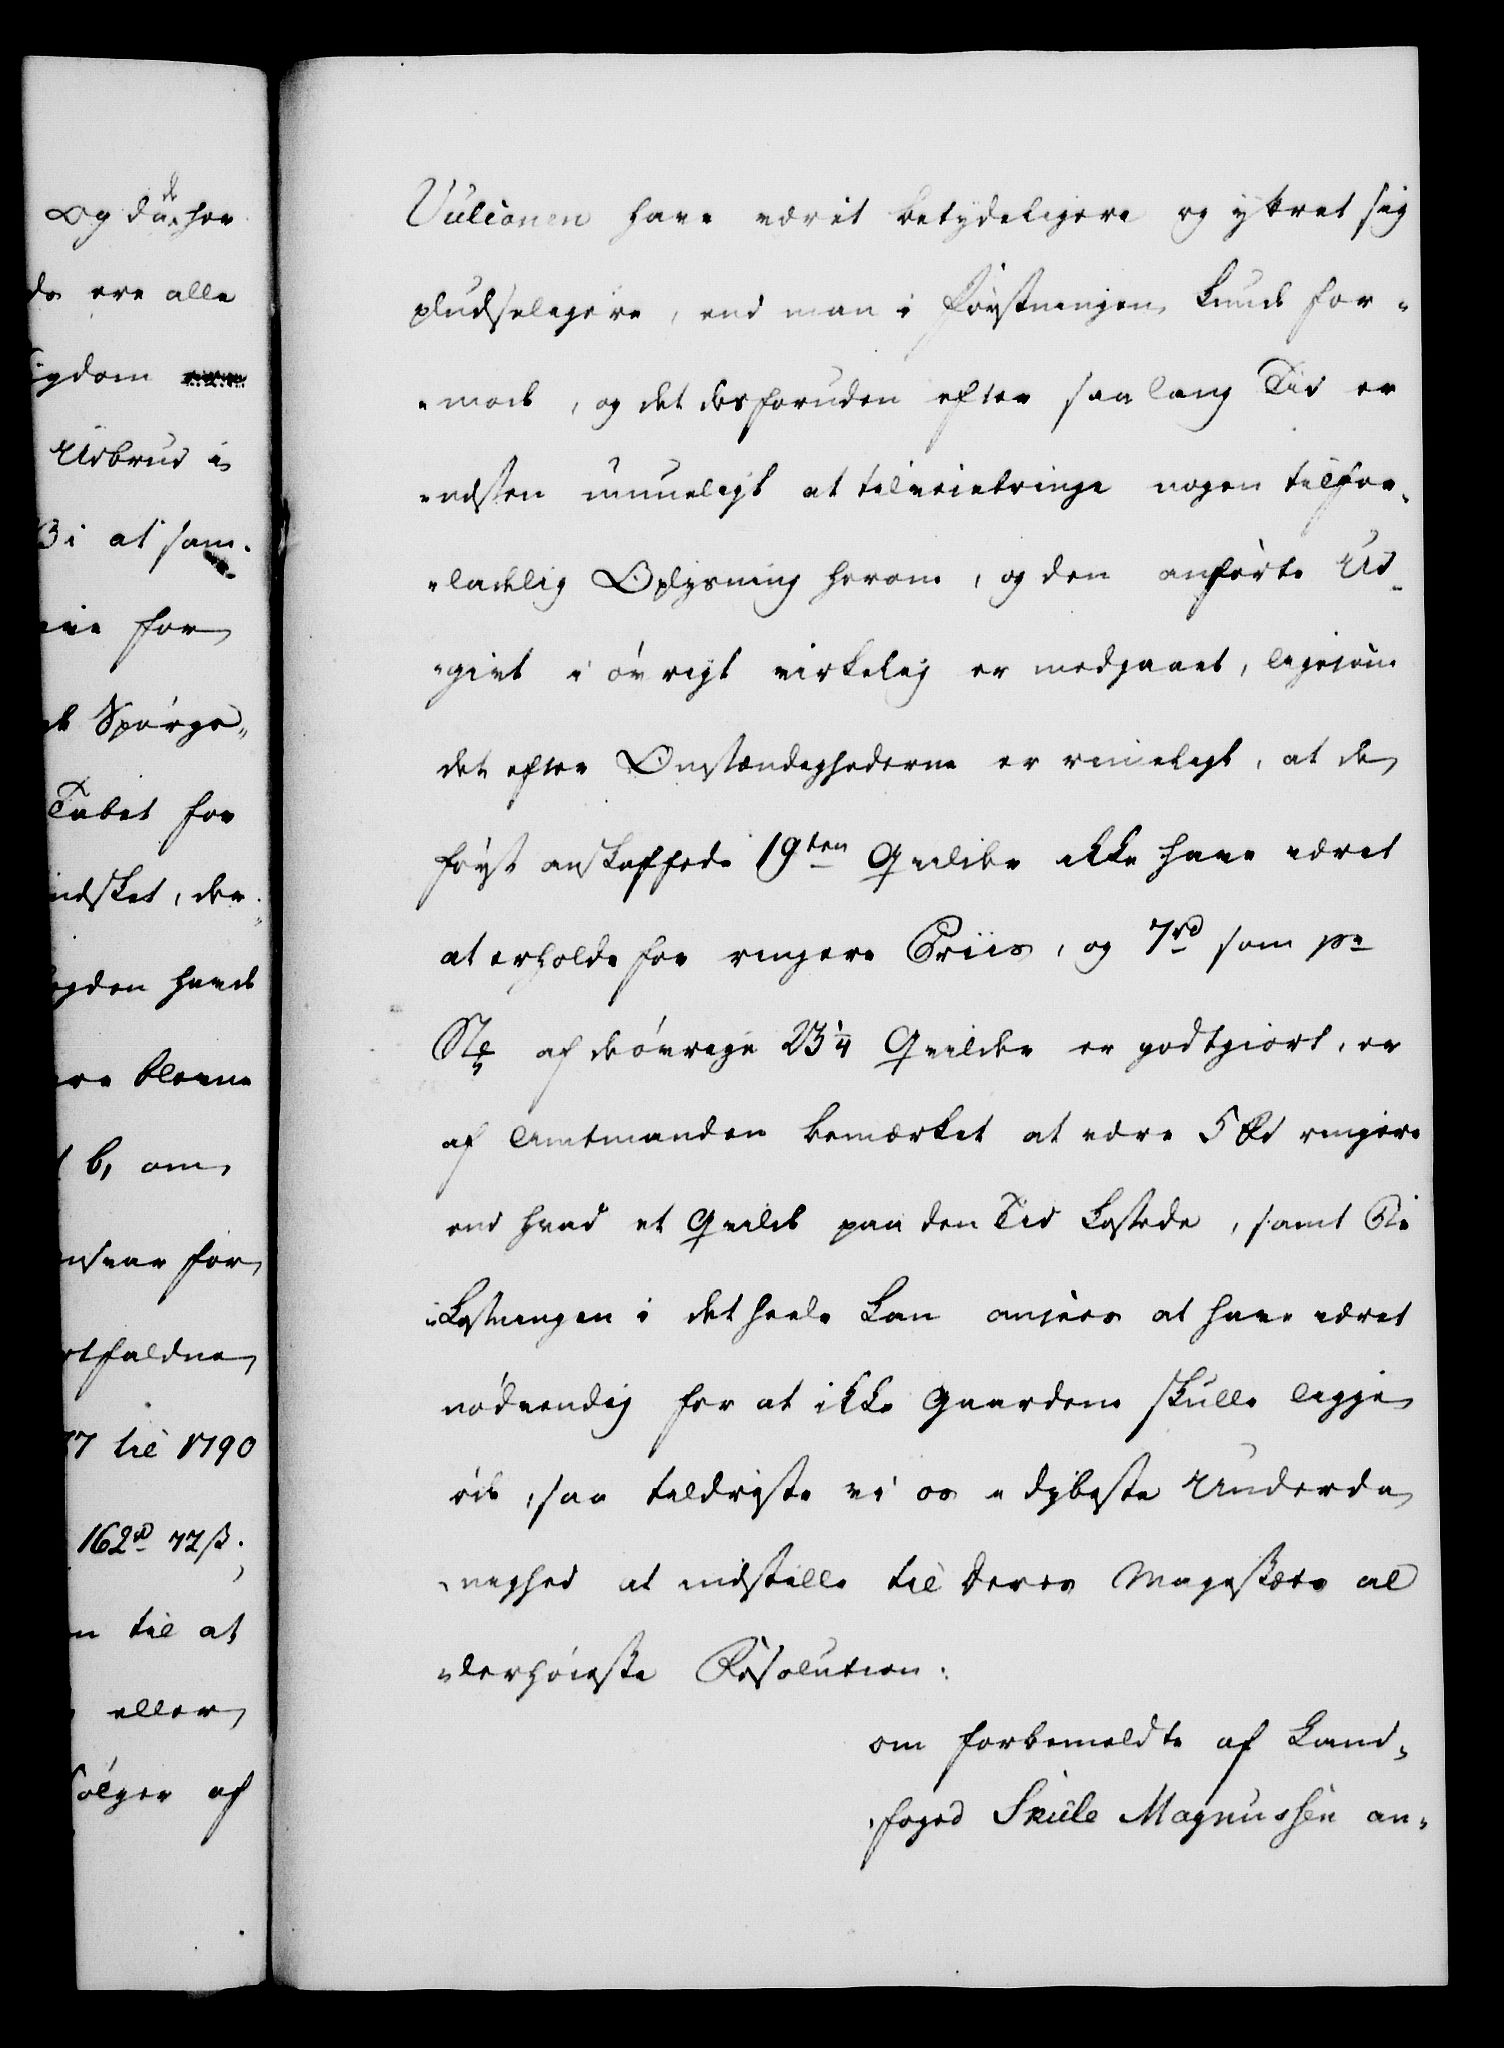 Og du de her
ds ere alle
igdom
Udbrud i
B i at sam-
for
Spørge„
Tabet for
indsket, der
gden havde
ere blevne
b, om
nsvar for
rtfaldne
77 til 1790
162rd 72ß.
n til at
eller
følger af
Vulcanen have været betydeligere og yttret sig
pludseligere, end man i Førstningen kunde for-
„mode, og det desforuden efter saa lang Tid er
næsten umueligt at tilveiebringe nogen tilfor„
„ladelig Oplysning herom, og den anførte Ud-
„givt i øvrigt virkelig er medgaaet, ligesom
det efter Omstændighederne er rimeligt, at de
først anskaffede 19ten Qvilder ikke have været
at erholde for ringere Priis, og 7rd som pr
Stk af de øvrige 23 1/4 Qvilder er godtgiort, er
af Amtmanden bemærket at være 5 Rd ringere
end hvad et Qvilde paa den Tid kostede, samt Be
„kostningen i det heele kan ansees at have været
nødvendig for at ikke Gaardene skulle ligge
øde, saa fordriste vi os i dybeste Underda
„nighed at indstille til Deres Majestæts al
„lerhøieste Resolution:
om forbemeldte af Land„
„foged Skule Magnussen an„